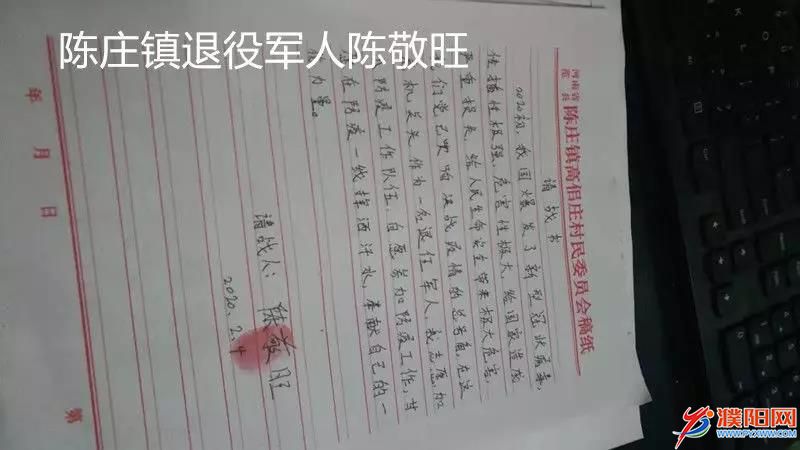 陈庄镇退役军人陈敬旺
河南省
范县
陈庄镇高佀庄村民委员会稿纸
请战书
2020初，我国爆发了新型冠状病毒，
传播性极强，危害性极大，给国家造成
严重损失，给人民生命安全带来极大危害，
我们党已吹响决战疫情的总号角，在这
危机关头，作为一名退伍军人，我志愿加
入防疫工作队伍，自愿参加防疫工作，甘
愿在防疫一线挥洒汗水，奉献自己的一
份力量。
请战人：陈敬旺
2020.2.4
年 月 日
第
濮阳网
WWW.PYXWW.COM